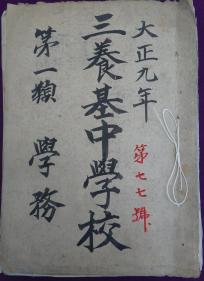 大正九年
第七七號
三養基中學校
第一類 學務